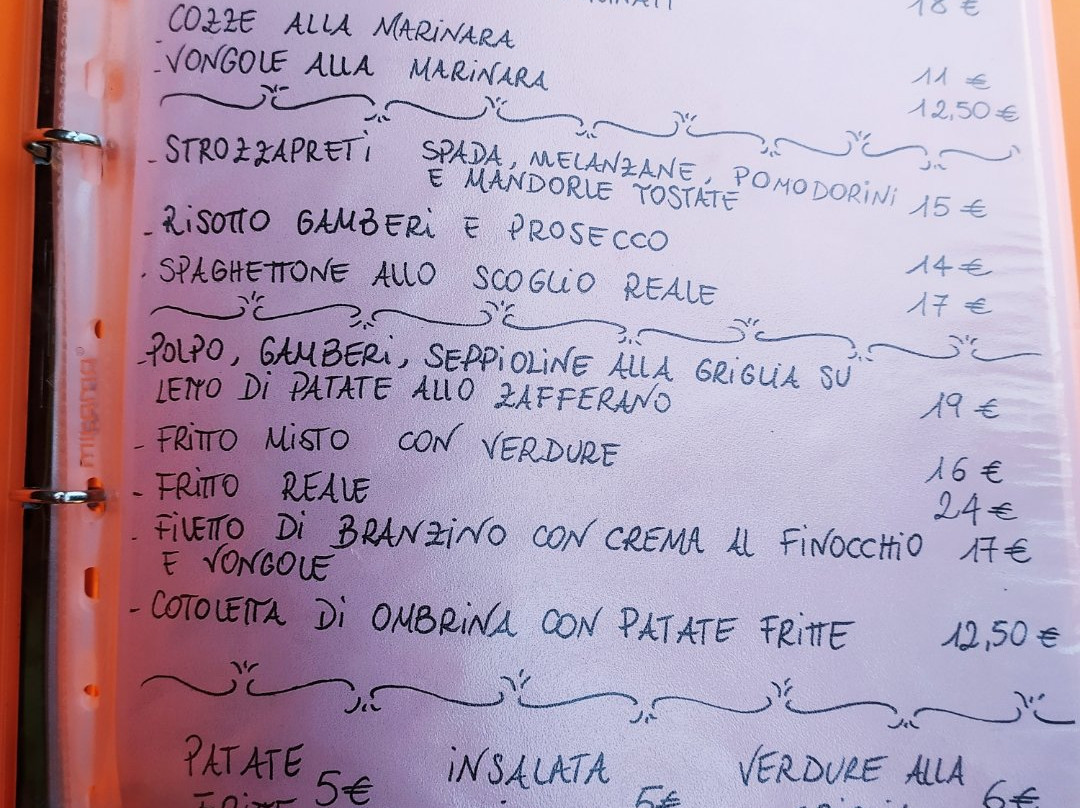 18 €
COZZE ALLA MARINARA 11 €
- VONGOLE ALLA MARINARA 12,50 €
- STROZZAPRETI SPADA, MELANZANE, POMODORINI
E MANDORLE TOSTATE 15 €
- RISOTTO GAMBERI E PROSECCO 14 €
- SPAGHETTONE ALLO SCOGLIO REALE 17 €
- POLPO, GAMBERI, SEPPIOLINE ALLA GRIGLIA SU
LETTO DI PATATE ALLO ZAFFERANO 19 €
- FRITTO MISTO CON VERDURE 16 €
- FRITTO REALE 24 €
- FILETTO DI BRANZINO CON CREMA AL FINOCCHIO 17 €
E VONGOLE
- COTOLETTA DI OMBRINA CON PATATE FRITTE 12,50 €
PATATE INSALATA VERDURE ALLA
FRITTE 5€ 6€ 6€